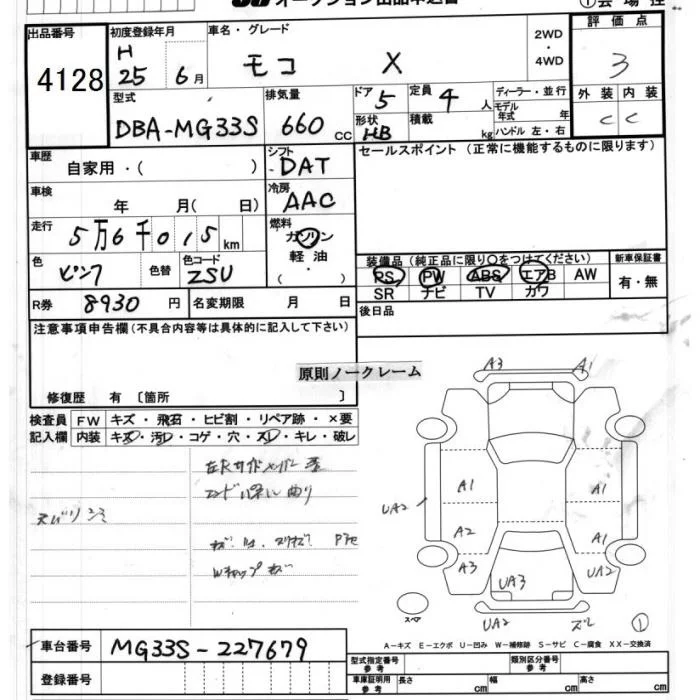 オークション出品申込書
① 会場控
出品番号
4128
初度登録年月
H
25 6月
車名・グレード
モコ X
2WD
・
4WD
評価点
3
型式
DBA-MG33S
排気量
660 cc
ドア 5
定員 4 人
形状 HB
積載 kg
ディーラー・並行
モデル年式 年
ハンドル 左・右
外装 内装
C C
車歴
自家用・( )
シフト
DAT
セールスポイント(正常に機能するものに限ります)
車検
年 月( 日)
冷房
AAC
走行
5万6千015km
燃料
ガソリン
軽油
・
( )
色
ピンク
色替
色コード
ZSU
装備品(純正品に限り○をつけてください)
PS PW ABS エアB AW
SR ナビ TV カワ
新車保証書
有・無
R券 8930 円
名変期限 月 日
後日品
注意事項申告欄(不具合内容等は具体的に記入して下さい)
原則ノークレーム
修復歴 有 〔箇所 〕
検査員 FW キズ・飛石・ヒビ割・リペア跡・×要
記入欄 内装 キズ・汚レ・コゲ・穴・スレ・キレ・破レ
左Rサイドメンバー
エンドパネル曲り
Wキャップキズ
A3 A1
UA2
A1 A1
A2 A1
A3 UA2
UA3
UA2 ズレ
スペア
①
A-キズ E-エクボ U-凹み W-補修跡 S-サビ C-腐食 XX-交換済
車台番号 MG33S-227679
登録番号
型式指定番号 参考
類別区分番号 参考
車庫証明用 参考 長さ cm 幅 cm 高さ cm